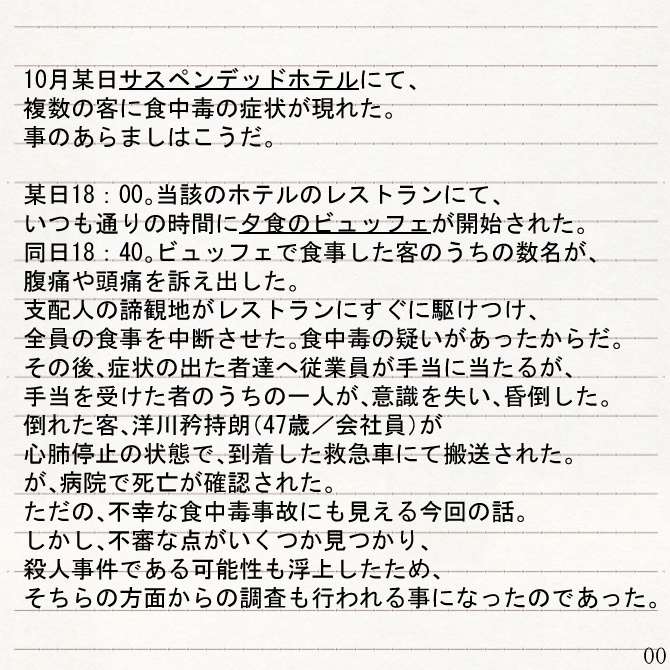 10月某日サスペンデッドホテルにて、
複数の客に食中毒の症状が現れた。
事のあらましはこうだ。
某日18：00。当該のホテルのレストランにて、
いつも通りの時間に夕食のビュッフェが開始された。
同日18：40。ビュッフェで食事した客のうちの数名が、
腹痛や頭痛を訴え出した。
支配人の諦観地がレストランにすぐに駆けつけ、
全員の食事を中断させた。食中毒の疑いがあったからだ。
その後、症状の出た者達へ従業員が手当に当たるが、
手当を受けた者のうちの一人が、意識を失い、昏倒した。
倒れた客、洋川矜持朗（47歳／会社員）が
心肺停止の状態で、到着した救急車にて搬送された。
が、病院で死亡が確認された。
ただの、不幸な食中毒事故にも見える今回の話。
しかし、不審な点がいくつか見つかり、
殺人事件である可能性も浮上したため、
そちらの方面からの調査も行われる事になったのであった。
00